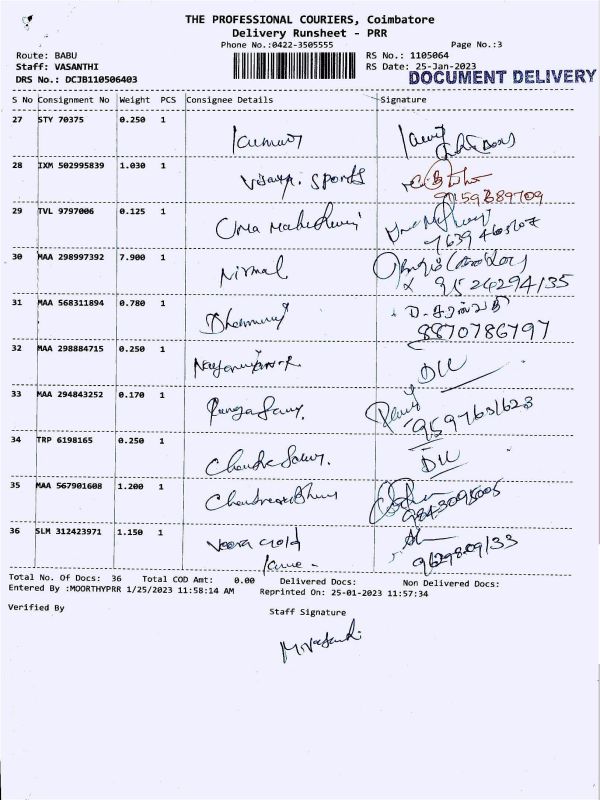 THE PROFESSIONAL COURIERS, Coimbatore
Delivery Runsheet - PRR
Phone No.:0422-3505555 Page No.:3
Route: BABU RS No.: 1105064
Staff: VASANTHI RS Date: 25-Jan-2023
DRS No.: DCJB110506403 DOCUMENT DELIVERY
S No Consignment No Weight PCS Consignee Details Signature
27 STY 70375 0.250 1 Kumar
28 IXM 502995839 1.030 1 Vijaya. Sports
9159689709
29 TVL 9797006 0.125 1 Uma Maheshwari
30 MAA 298997392 7.900 1 Nirmal
9524294135
31 MAA 568311894 0.780 1
8870786797
32 MAA 298884715 0.250 1
33 MAA 294843252 0.170 1 Rangasamy.
9597631623
34 TRP 6198165 0.250 1 Chandrasamy.
35 MAA 567901608 1.200 1
9843095005
36 SLM 312423971 1.150 1 Veera Gold
9629809133
Total No. Of Docs: 36 Total COD Amt: 0.00 Delivered Docs: Non Delivered Docs:
Entered By :MOORTHYPRR 1/25/2023 11:58:14 AM Reprinted On: 25-01-2023 11:57:34
Verified By Staff Signature
M.Vasanthi